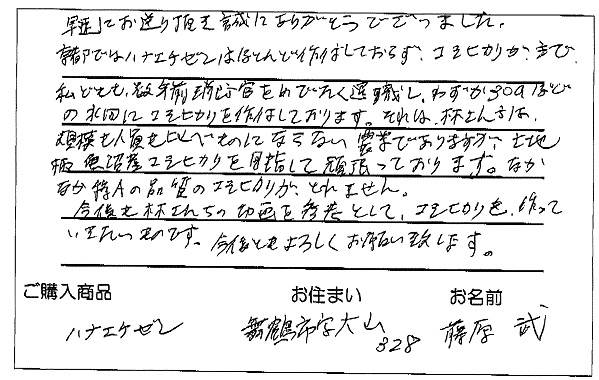 早速にてお送り頂き誠にありがとうございました。
京都ではハナエチゼンはほとんど作付しておらず、コシヒカリが主で
私ども、数年前消防官をめでたく退職し、わずか30aほど
の水田にコシヒカリを作付しております。それは、林さんちは、
規模も人員も比べものにならない農業でありますが、土地
柄魚沼産コシヒカリを目指して頑張っております。なか
なか特Aの品質のコシヒカリが、とれません。
今後も林さんちの動画を参考として、コシヒカリを、作って
いきたいものです。今後ともよろしくお願い致します。
ご購入商品 お住まい お名前
ハナエチゼン 舞鶴市字大山 藤原 武
328